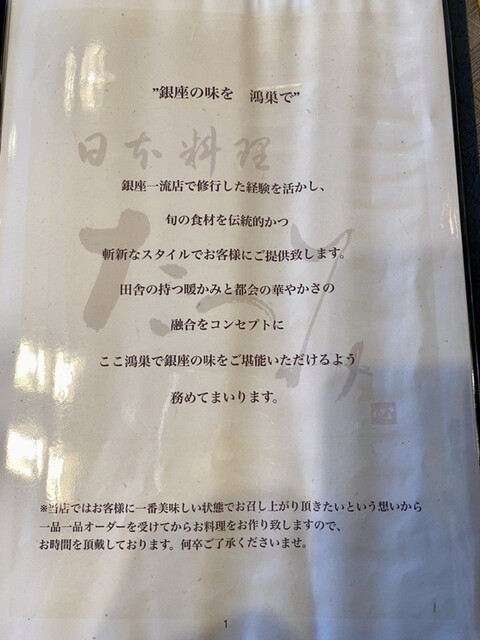 ”銀座の味を　鴻巣で”
日本料理
銀座一流店で修行した経験を活かし、
旬の食材を伝統的かつ
斬新なスタイルでお客様にご提供致します。
田舎の持つ暖かみと都会の華やかさの
融合をコンセプトに
ここ鴻巣で銀座の味をご堪能いただけるよう
務めてまいります。
※当店ではお客様に一番美味しい状態でお召し上がり頂きたいという想いから
一品一品オーダーを受けてからお料理をお作り致しますので、
お時間を頂戴しております。何卒ご了承くださいませ。
1